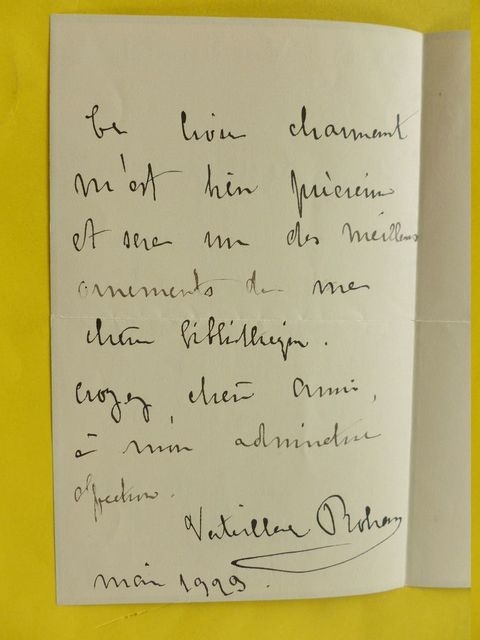 Ce livre charmant
m'est bien précieux
et sera un des meilleurs
ornements de ma
chère bibliothèque.
Croyez, chère amie,
à mon admirative
affection.
Verteillac Rohan
mai 1923.